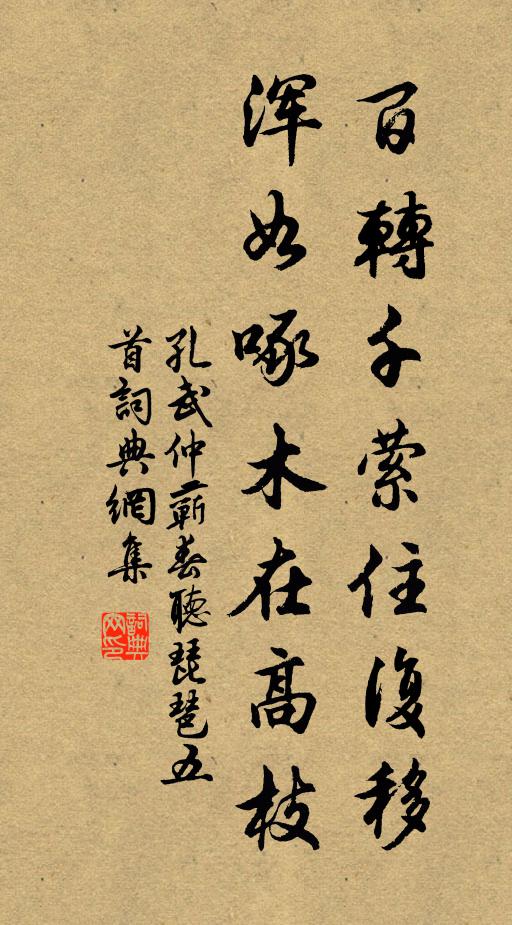 百轉千縈住復移
渾如啄木在高枝
孔武仲蘄春聽琵琶五
首詞典網集
詞典網印